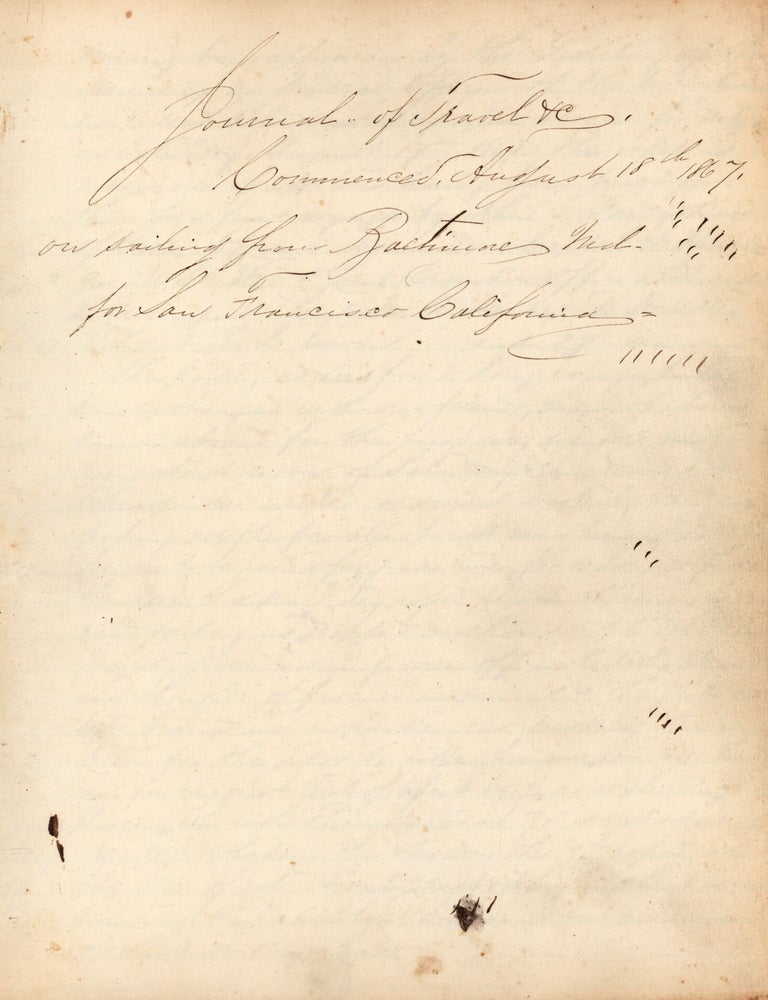 Journal of Travel &c.
Commenced, August 18th 1867.
on sailing from Baltimore Md.
for San Francisco California =